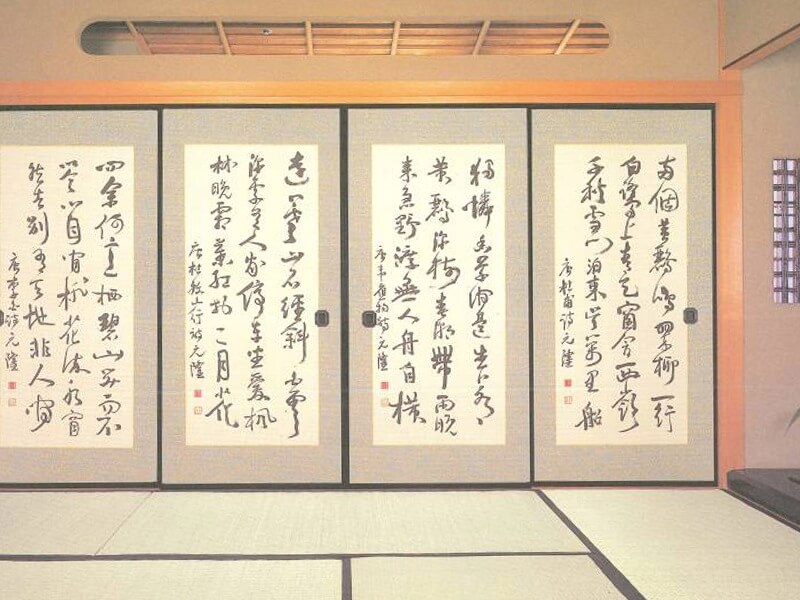 両個黄鸝鳴翠柳一行
白鷺上青天窗含西嶺
千秋雪門泊東呉萬里船
唐杜甫詩元
獨憐幽草澗邊生上有
黄鸝深樹鳴春潮帶雨晩
來急野渡無人舟自横
唐韋應物詩元
遠上寒山石徑斜白雲
深處有人家停車坐愛楓
林晩霜葉紅於二月花
唐杜牧山行詩元
問余何意栖碧山笑而不
答心自閑桃花流水窅
然去別有天地非人間
唐李白詩元